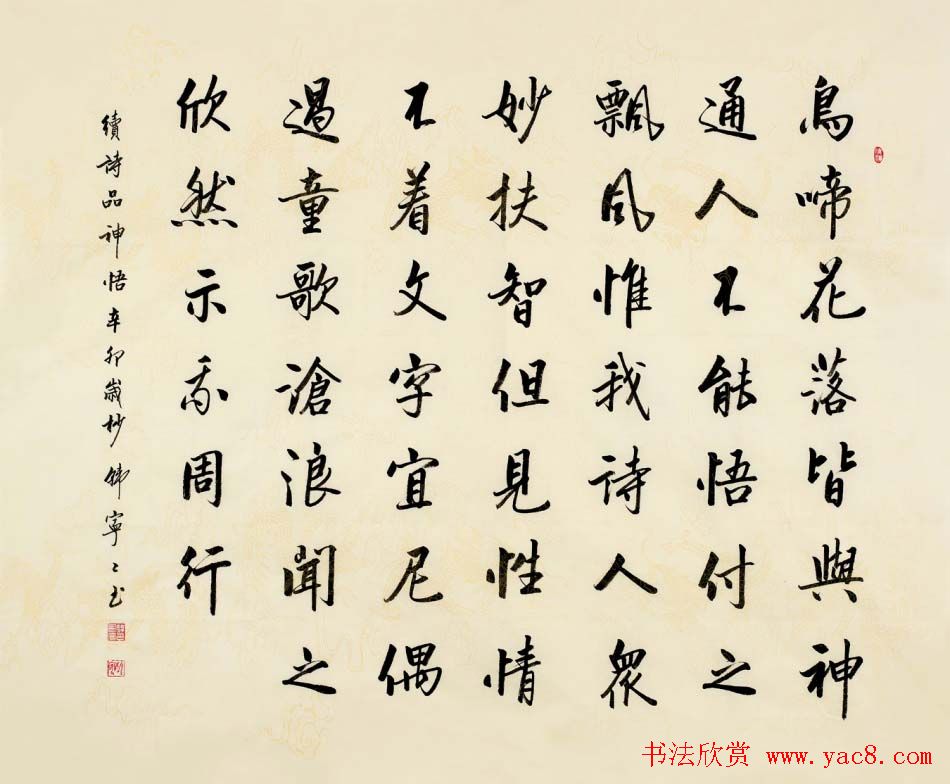 鳥啼花落皆與神
通人不能悟付之
飄風惟我詩人眾
妙扶智但見性情
不着文字宜尼偶
過童歌滄浪聞之
欣然示我周行
續詩品神悟辛卯歲杪韩寧〻书
书法欣赏 www.yac8.com